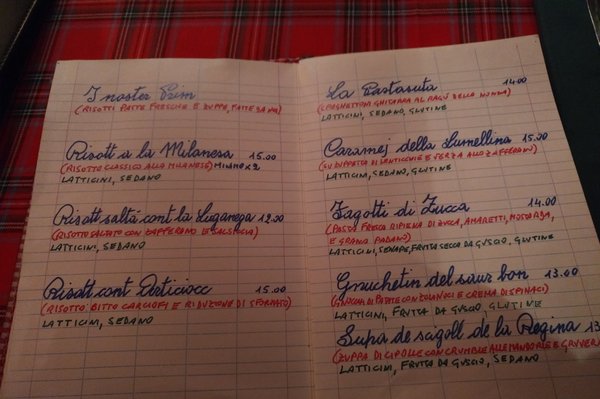 I noster Prim
(RISOTTI PASTE FRESCHE E ZUPPE, FATTE DA NOI)
Risott a la Milanesa 15.00
(RISOTTO CLASSICO ALLO MILANESE) MILANO X 2
LATTICINI, SEDANO
Risott saltà cont la Luganega 12.00
(RISOTTO SALTATO CON ZAFFERANO E SALSICCIA)
LATTICINI, SEDANO
Risott cont Articiocc 15.00
(RISOTTO BITTO CARCIOFI E RIDUZIONE DI SFORZATO)
LATTICINI, SEDANO
La Pastasuta 14.00
(SPAGHETTONI GHITARRA AL RAGÙ DELLA NONNA)
LATTICINI, SEDANO, GLUTINE
Caramej della Lumellina 15.00
(SU ZUPPETTA DI LENTICCHIE E VERZA ALLO ZAFFERANO)
LATTICINI, SEDANO, GLUTINE
Fagotti di Zucca 14.00
(PASTA FRESCA RIPIENA DI ZUCCA, AMARETTI, MOSTARDA,
E GRANA PADANO)
LATTICINI, SENAPE, FRUTTA SECCA DA GUSCIO, GLUTINE
Gnuchetin del saur bon 13.00
(GNOCCHI DI PATATE CON ZOLA NOCI E CREMA DI SPINACI)
LATTICINI, FRUTTA DA GUSCIO, GLUTINE
Supa de scigoll de la Regina 13
(ZUPPA DI CIPOLLE CON CRUMBLE ALLE MANDORLE E GRUVER
LATTICINI, FRUTTA DA GUSCIO, SEDANO